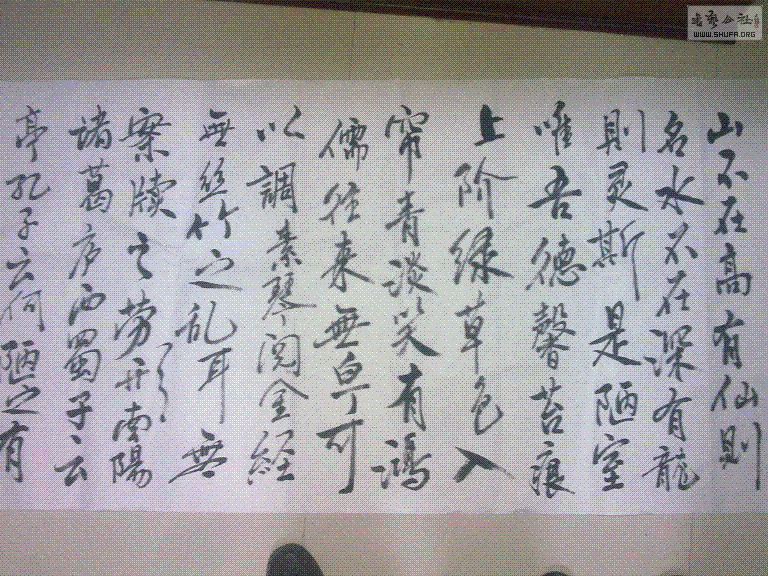 山不在高有仙則
名水不在深有龍
則灵斯是陋室
唯吾德馨苔痕
上阶绿草色入
帘青谈笑有鴻
儒往来無白丁可
以調素琴阅金经
無丝竹之乱耳無
案牍之劳形南陽
诸葛庐西蜀子云
亭孔子云何陋之有
WWW.SHUFA.ORG